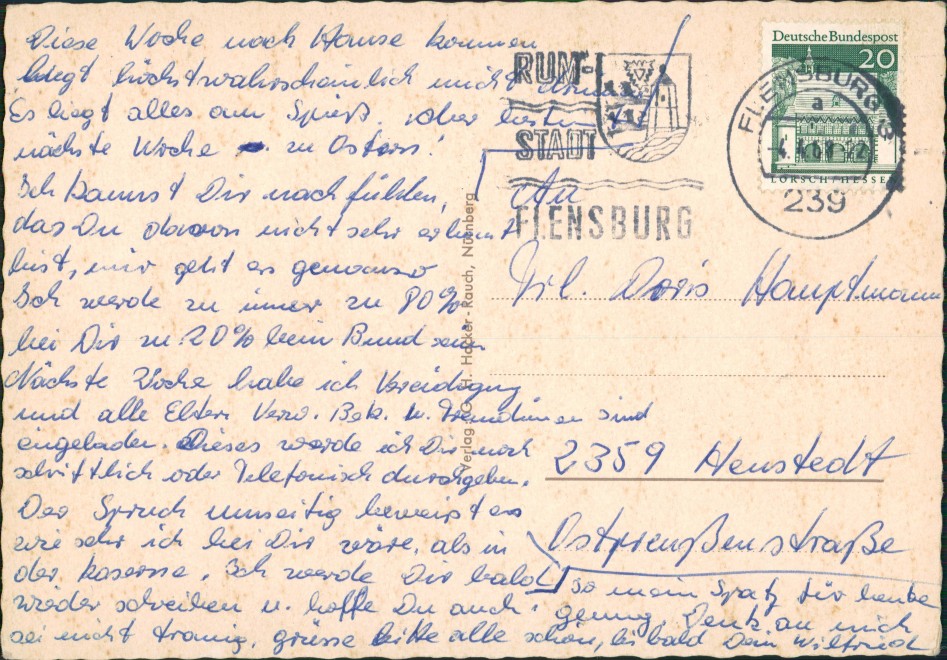 Diese Woche nach Hause kommen
liegt höchstwahrscheinlich nicht drin.
Es liegt alles am Spieß, aber
nächste Woche zu Ostern!
Ich kann's t Dir nachfühlen,
das Du davon nicht sehr erbaut
bist, mir geht es genauso
Ich werde zu immer zu 80%
bei Dir zu 20% beim Bund sein
Nächste Woche habe ich Vereidigung
und alle Eltern Verw. Bek. u. Freundinnen sind
eingeladen. Dieses werde ich Dir noch
schriftlich oder Telefonisch durchgeben.
Der Spruch umseitig beweist es
wie sehr ich bei Dir wäre, als in
der Kaserne. Ich werde Dir bald
wieder schreiben u. hoffe Du auch.
sei nicht traurig, grüsse bitte alle schön, bis bald Dein Wilfried
so mein Spatz für heute
genug. Denk an mich
Verlag: G. H. Hacker-Rauch, Nürnberg
RUM-
STADT
FLENSBURG
Deutsche Bundespost
20
LORSCH/HESSEN
FLENSBURG
a
239
An
Frl. Doris Hauptmann
2359 Henstedt
Ostpreußenstraße